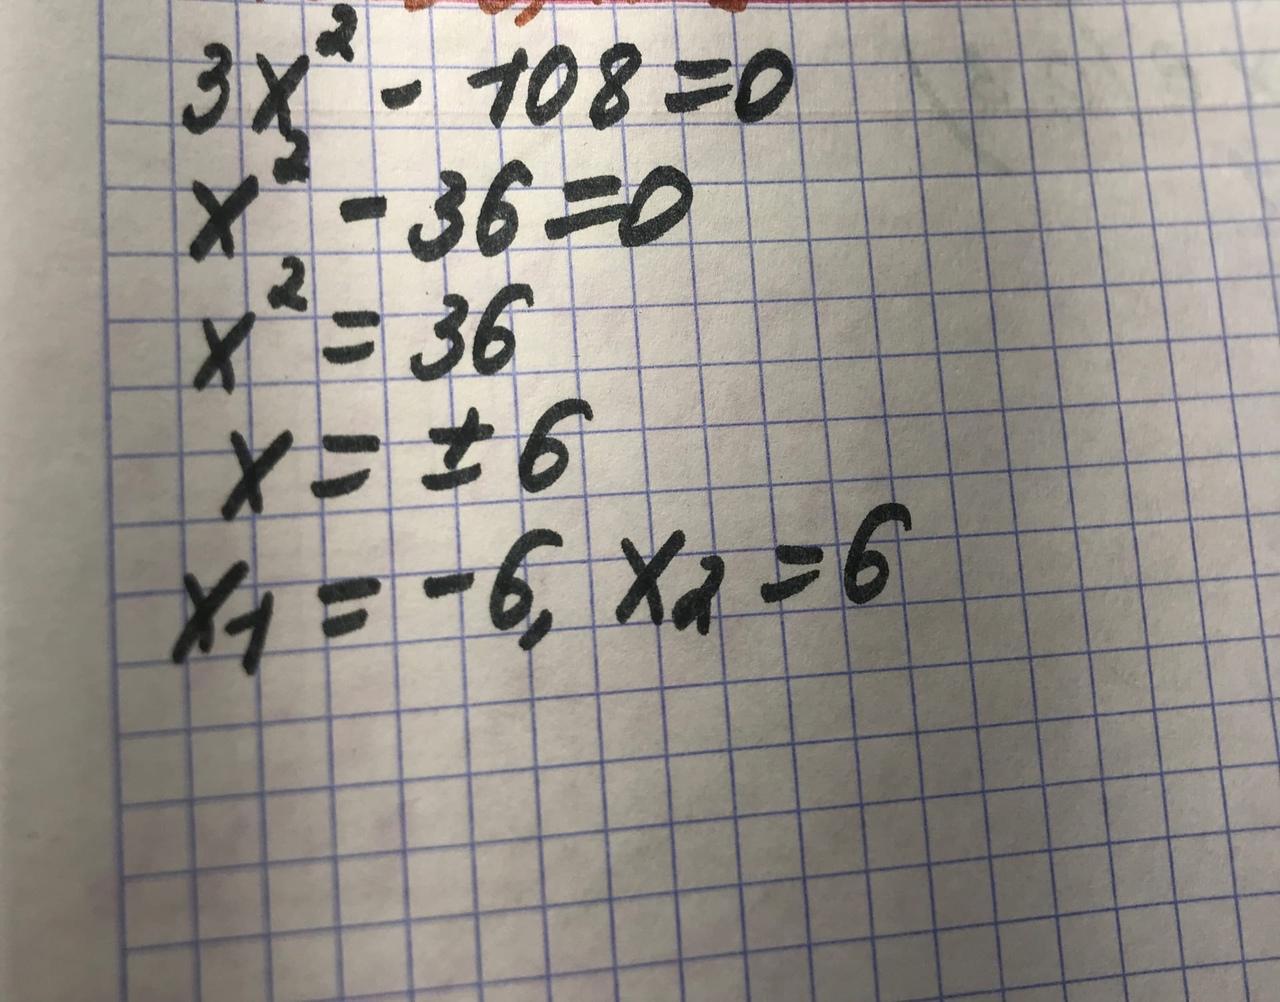 3x² - 108 = 0
x² - 36 = 0
x² = 36
x = ± 6
x₁ = -6, x₂ = 6